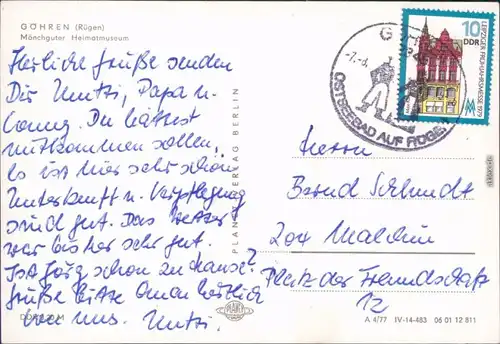 GÖHREN (Rügen)
Mönchguter Heimatmuseum
Herzliche Grüße senden
Dir Mutti, Papa u.
Conny. Du hättest
mitkommen sollen,
es ist hier sehr schön
Unterkunft u. Verpflegung
sind gut. Das Wetter
war bis her sehr gut.
Ist Jörg schon zu Hause?
Grüße bitte Oma herzlich
von uns. Mutti.
PLANET-VERLAG BERLIN
10
DDR
LEIPZIGER FRÜHJAHRSMESSE 1979
OSTSEEBAD AUF RÜGEN
Herrn
Bernd Schmidt
204 Malchin
Platz der Freundschaft
12
PLANET
A 4/77 IV-14-483 06 01 12 811